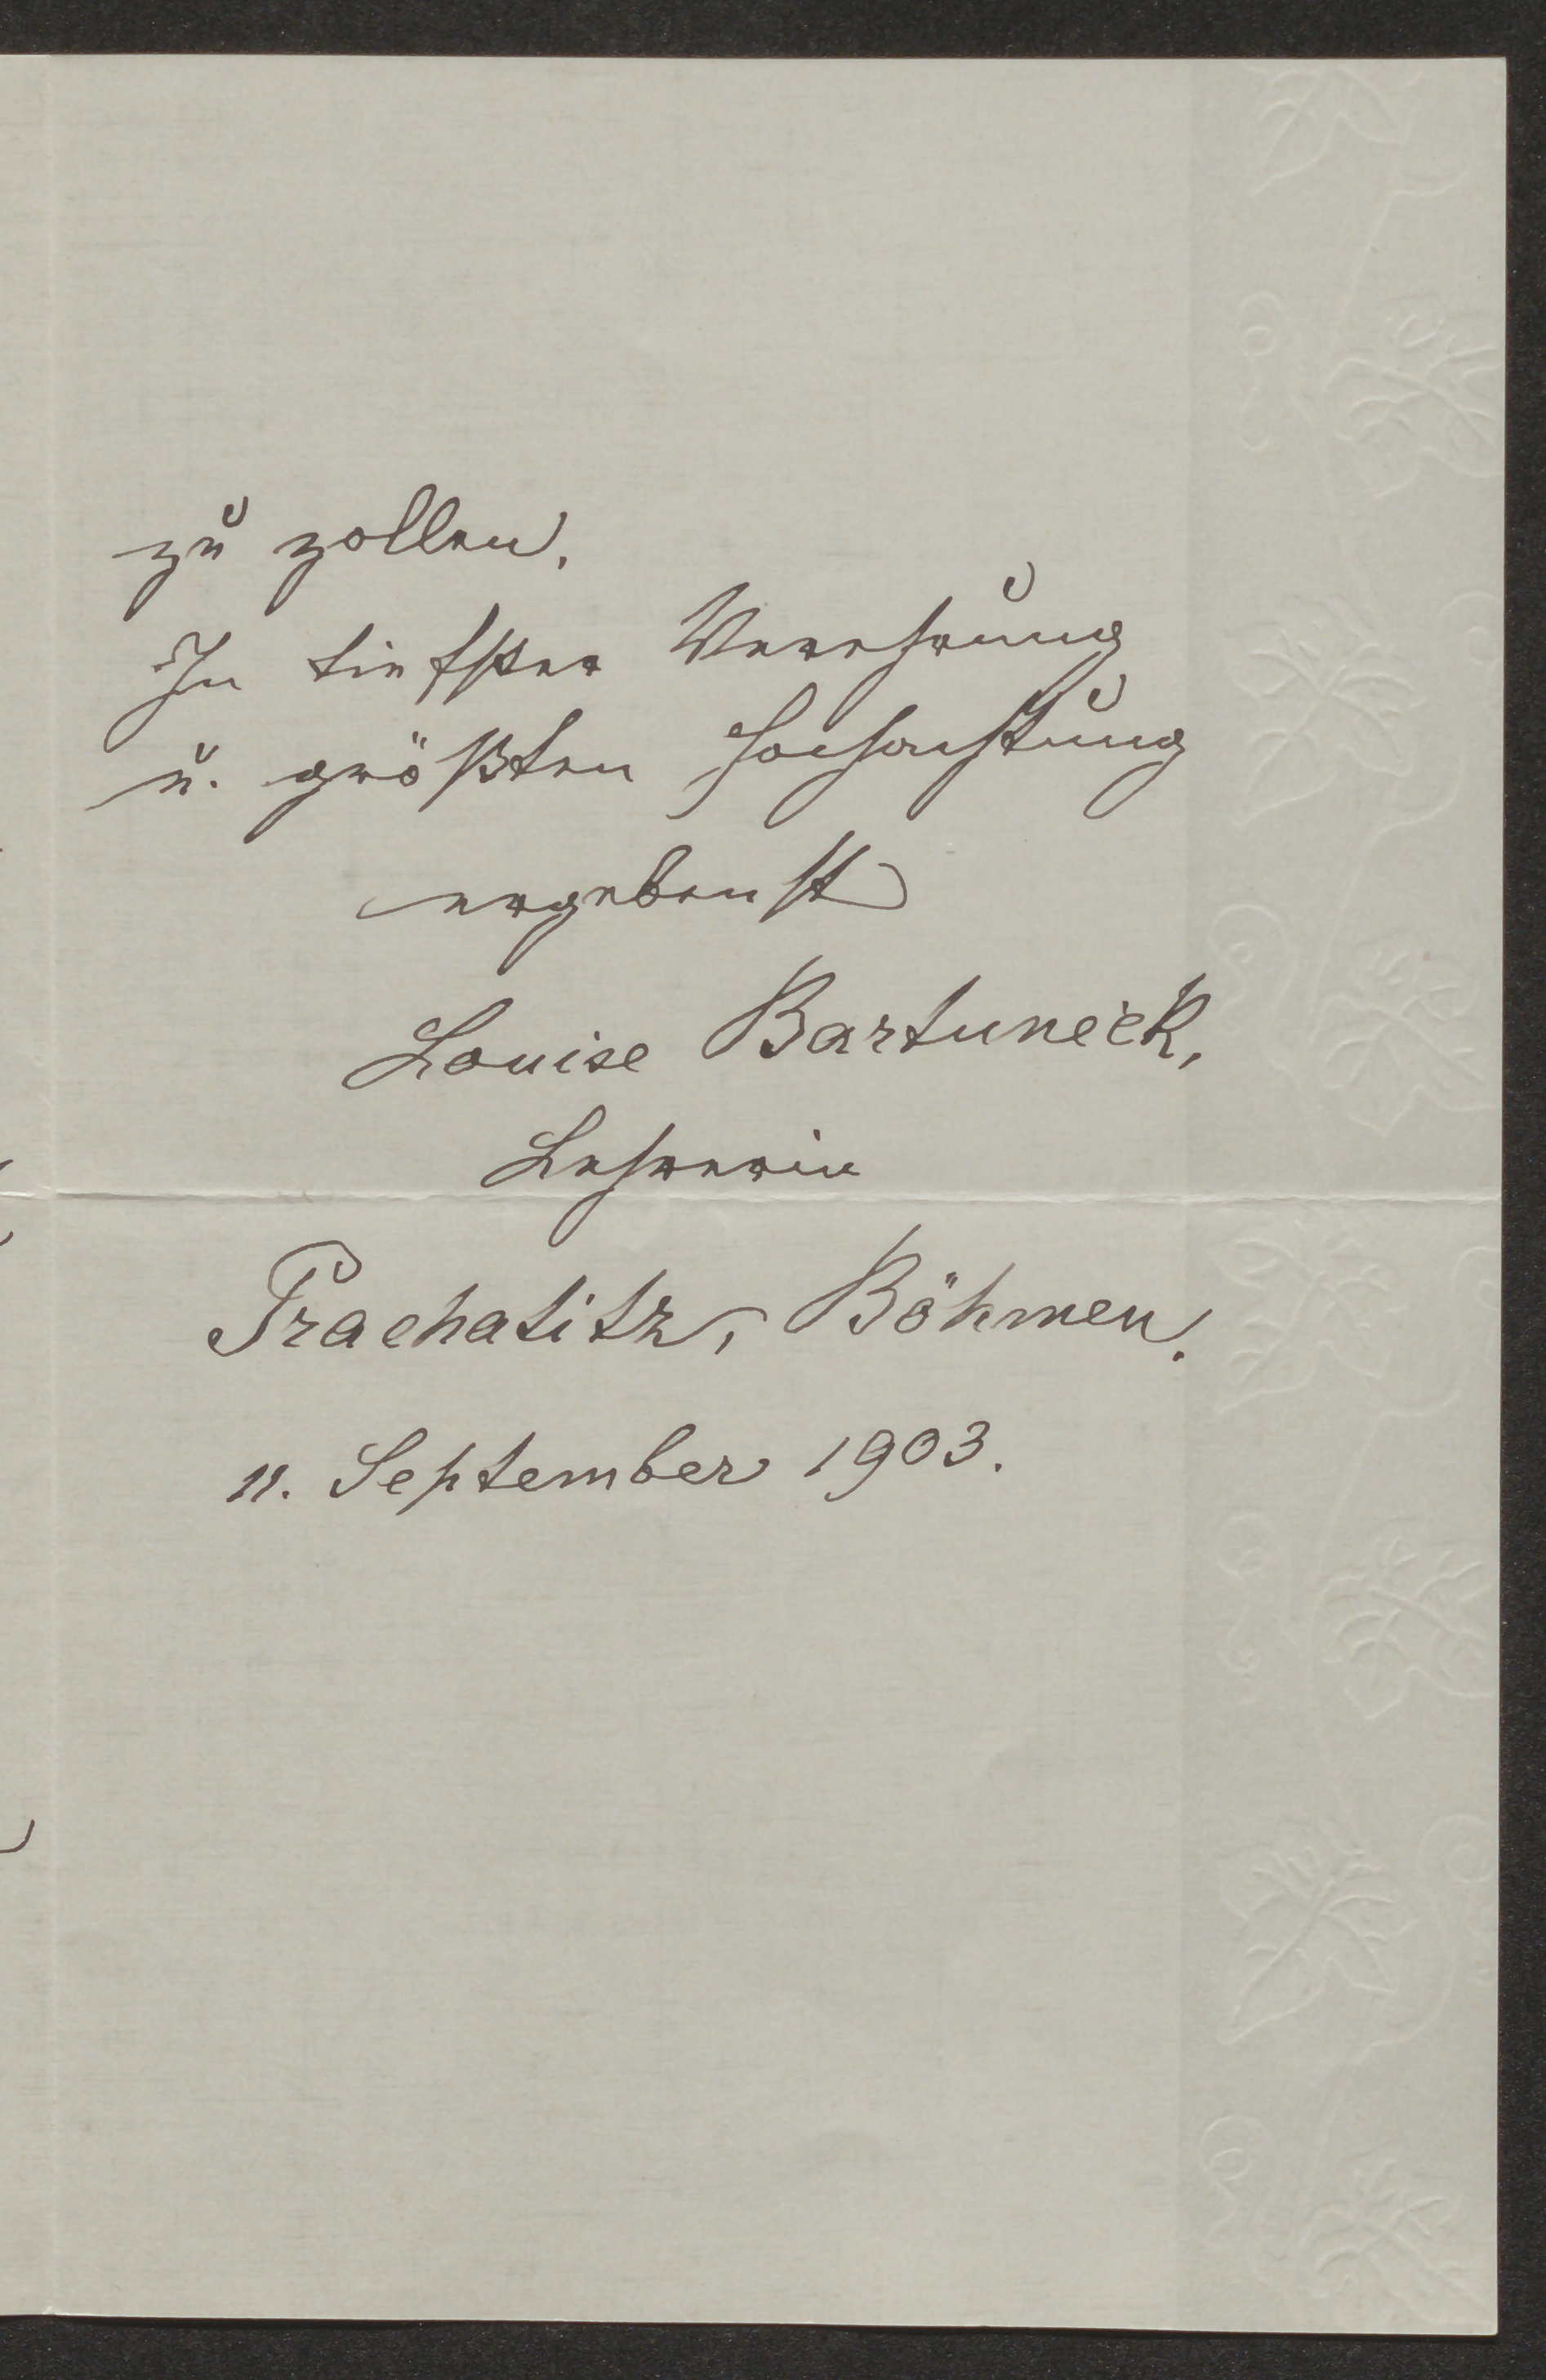 zu zollen.
In tiefster Verehrung
u. größten Hochachtung
ergebenst
Louise Bartuneck,
Lehrerin
Prachatitz, Böhmen.
11. September 1903.